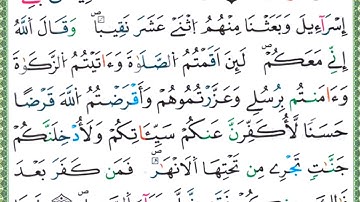 إِسْرَٰٓءِيلَ وَبَعَثْنَا مِنْهُمُ اثْنَيْ عَشَرَ نَقِيبًاۖ وَقَالَ اللَّهُ
إِنِّي مَعَكُمْۖ لَئِنْ أَقَمْتُمُ الصَّلَوٰةَ وَءَاتَيْتُمُ الزَّكَوٰةَ
وَءَامَنتُم بِرُسُلِي وَعَزَّرْتُمُوهُمْ وَأَقْرَضْتُمُ اللَّهَ قَرْضًا
حَسَنًا لَّأُكَفِّرَنَّ عَنكُمْ سَيِّـَٔاتِكُمْ وَلَأُدْخِلَنَّكُمْ
جَنَّٰتٍ تَجْرِي مِن تَحْتِهَا الْأَنْهَٰرُۖ فَمَن كَفَرَ بَعْدَ